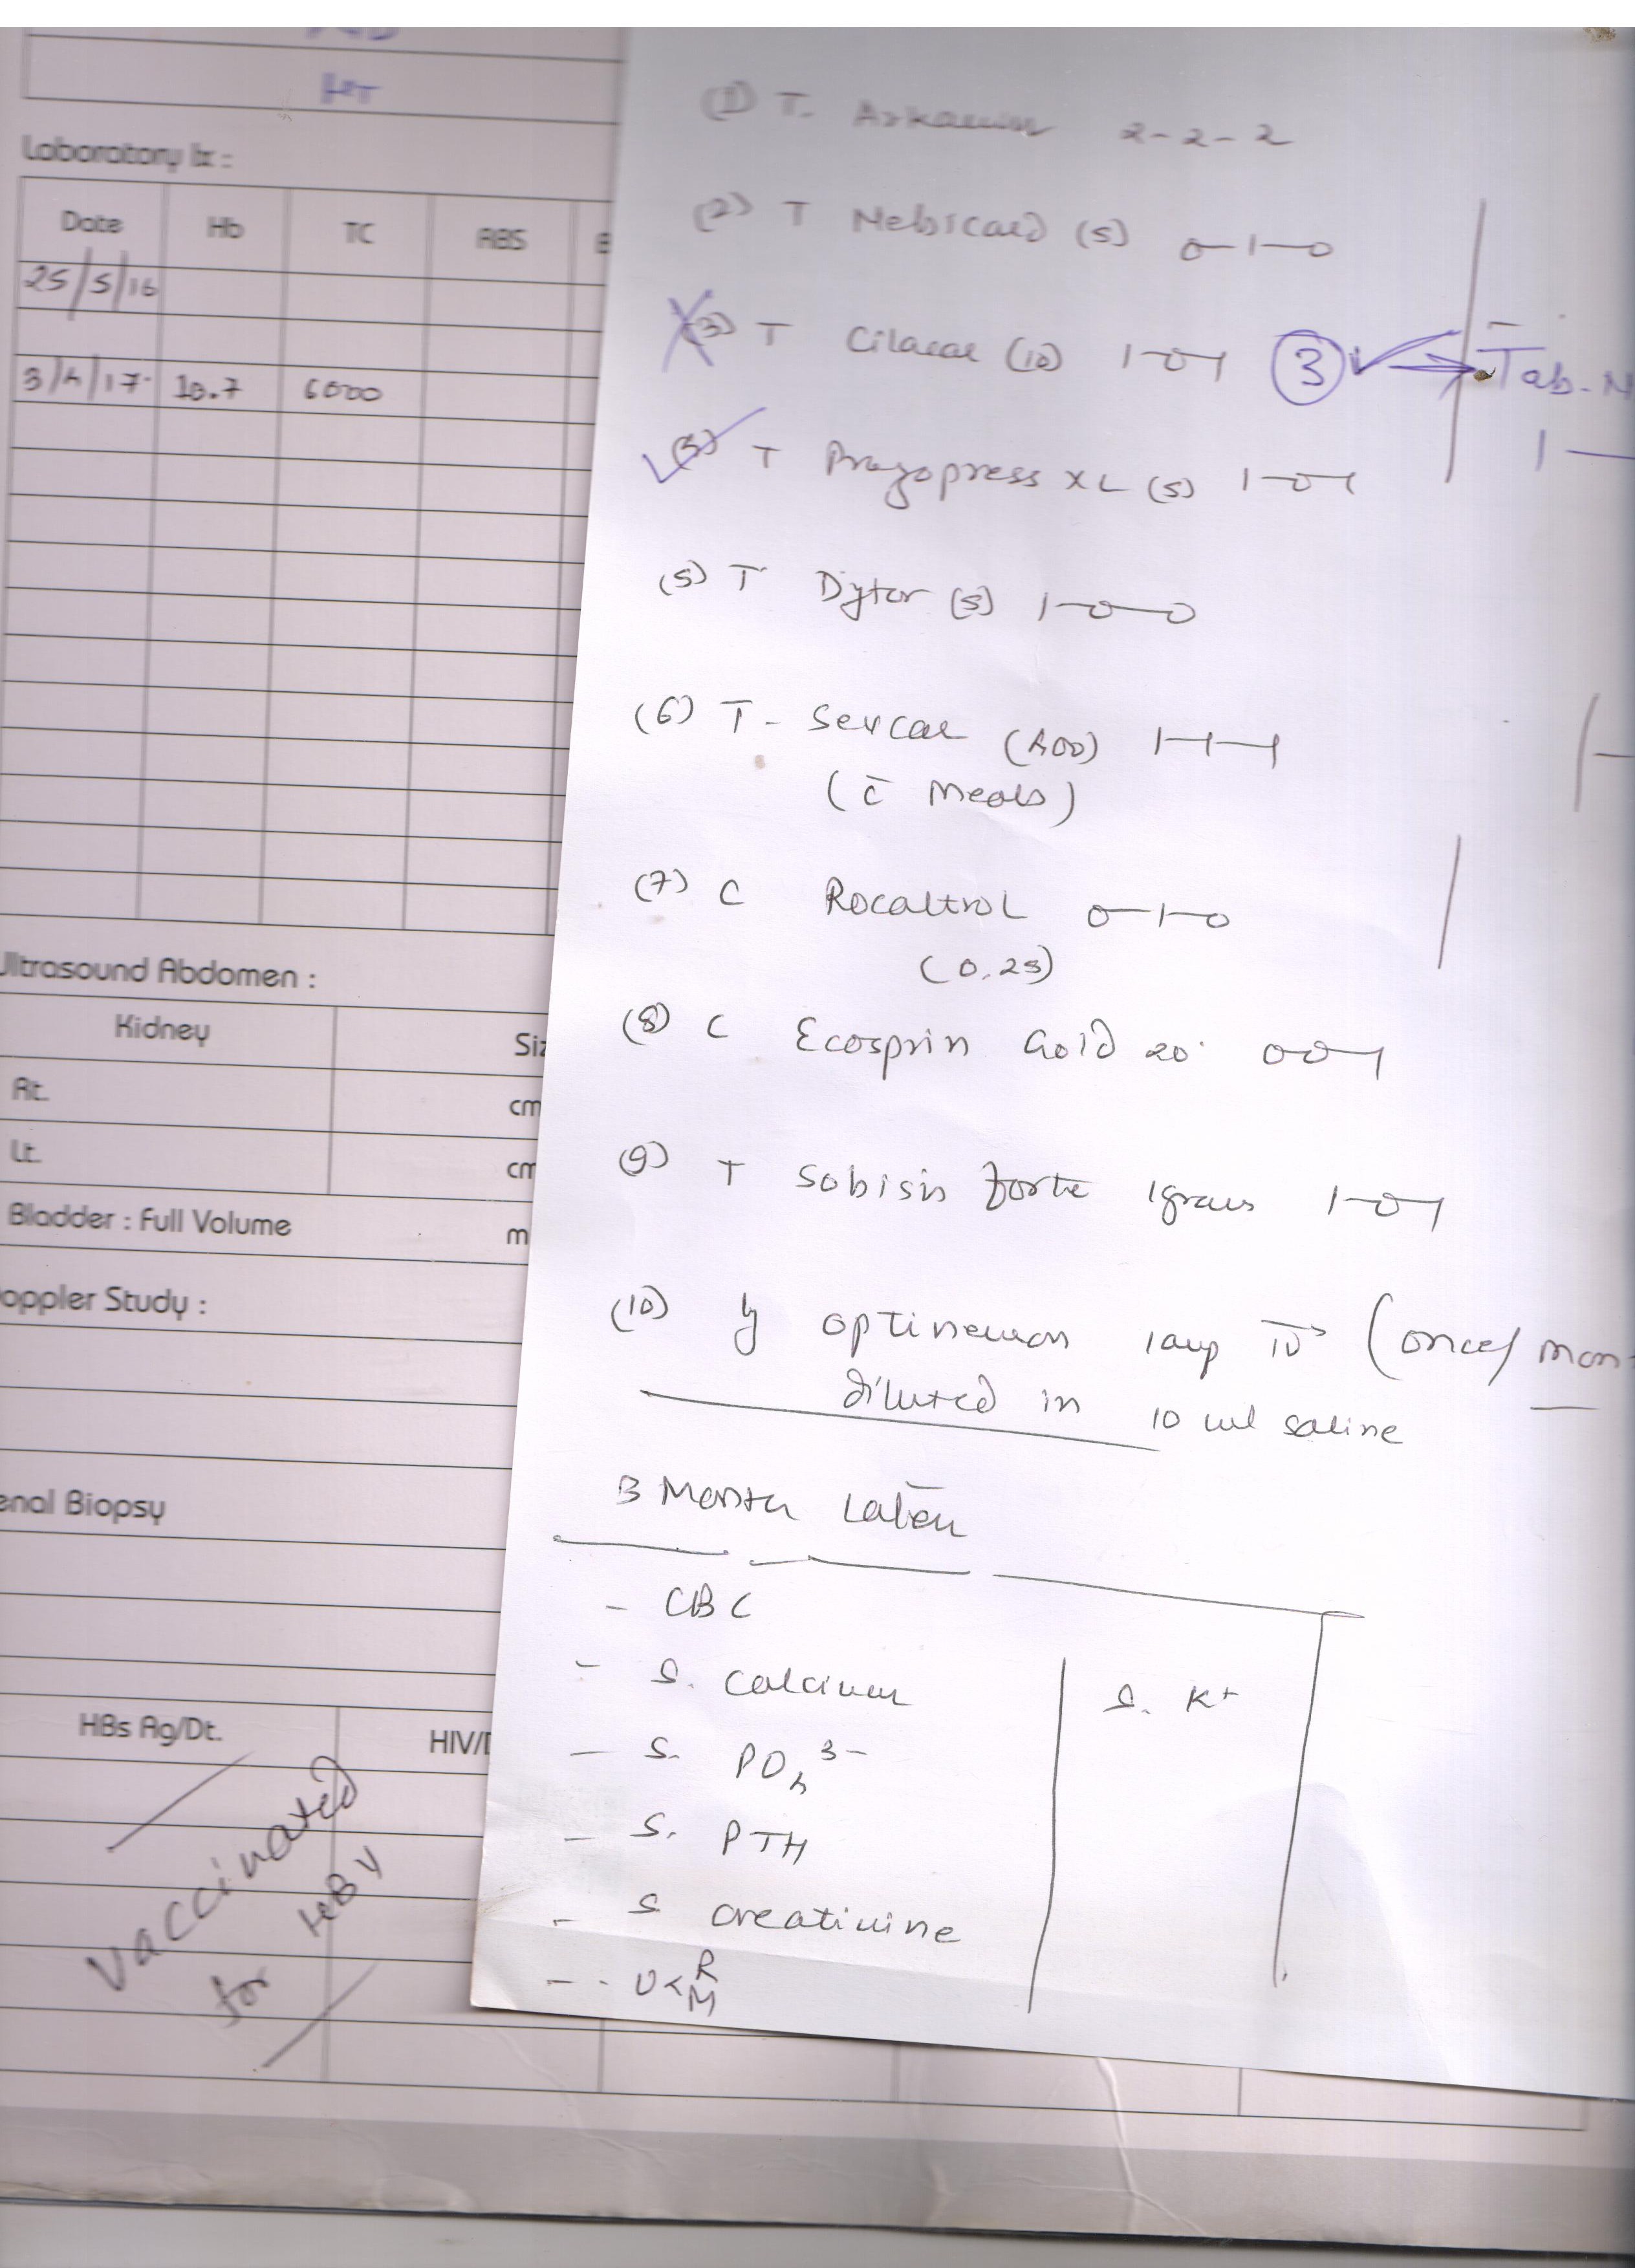 HT
Laboratory Ix :
Date Hb TC RBS
25/5/16
3/4/17 10.7 6000
Ultrasound Abdomen :
Kidney
Rt. cm
Lt. cm
Bladder : Full Volume
Doppler Study :
Renal Biopsy
HBs Ag/Dt.
vaccinated
for HBV
(1) T. Arkamin 2-2-2
(2) T Nebicard (5) 0-1-0
(3) T Cilacar (10) 1-0-1 3 Tab-
T Prazopress XL (5) 1-0-1
(5) T Dytor (5) 1-0-0
(6) T- Sevcar (400) 1-1-1
(c̄ Meals)
(7) C Rocaltrol 0-1-0
(0.25)
(8) C Ecosprin Gold 20 0-0-1
(9) T Sobisis forte 1gram 1-0-1
(10) Inj optineuron 1amp IV (once/
diluted in 10 ml saline
3 Month Later
- CBC
- S. Calcium S. K+
- S. PO4 3-
- S. PTH
- S creatinine
- U< R M